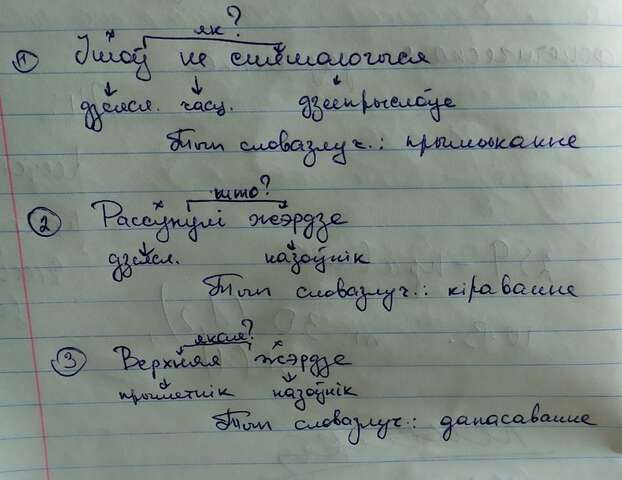 як?
1 Ішоў не спяшаючыся
дзеясл. часц. дзеепрыслоўе
Тып словазлуч.: прымыканне
што?
2 Рассунулі жэрдзе
дзеясл. назоўнік
Тып словазлуч.: кіраванне
якая?
3 Верхняя жэрдзе
прыметнік назоўнік
Тып словазлуч.: дапасаванне